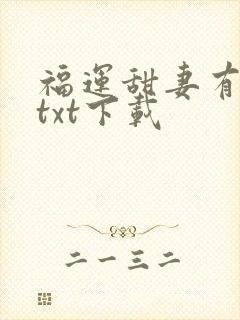 福運甜妻有
txt下載
二一三二